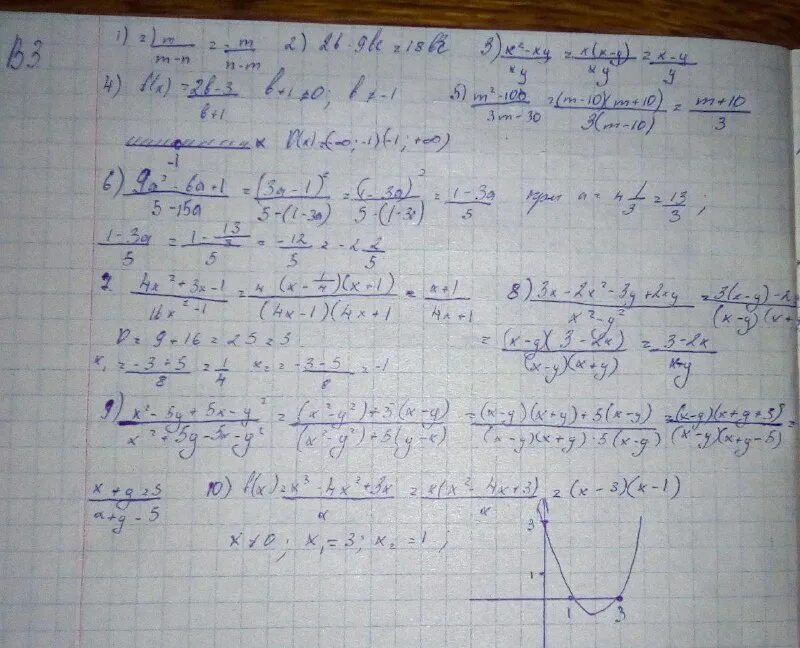 B3
1) = ) m/(m-n) = m/(n-m) 2) 2b · 9bc = 18b²c 3) (x²-xy)/xy = x(x-y)/xy = (x-y)/y
4) f(x) = (2b-3)/(b+1) b+1≠0; b≠-1 5) (m²-100)/(3m-30) = (m-10)(m+10)/3(m-10) = (m+10)/3
-1 x D(x) = (-∞;-1)(-1;+∞)
6) (9a²-6a+1)/(5-15a) = (3a-1)²/(5-(1-3a)) = (1-3a)²/(5-(1-3a)) = (1-3a)/5 при a = 4 1/3 = 13/3;
(1-3a)/5 = (1-13/3)/5 = -12/5 = -2 2/5
7 (4x²+3x-1)/(16x²-1) = 4(x-1/4)(x+1)/((4x-1)(4x+1) = (x+1)/(4x+1) 8) (3x-2x²-3y+2xy)/(x²-y²) = 3(x-y)-2x/(x-y)(x+
D = 9+16 = 25 = 5 = (x-y)(3-2x)/(x-y)(x+y) = (3-2x)/(x+y)
x₁ = (-3+5)/8 = 1/4 x₂ = (-3-5)/8 = -1
9) (x²-5y+5x-y²)/(x²+5y-5x-y²) = ((x²-y²)+5(x-y))/((x²-y²)+5(y-x)) = ((x-y)(x+y)+5(x-y))/((x-y)(x+y)-5(x-y)) = (x-y)(x+y+5)/(x-y)(x+y-5) =
(x+y+5)/(x+y-5) 10) f(x) = (x³-4x²+3x)/x = x(x²-4x+3)/x = (x-3)(x-1)
x≠0; x₁=3; x₂=1;
3
1
1 3